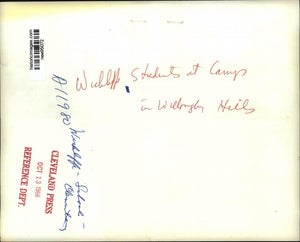 Wickliffe Students at Camp
in Willoughby Hills
A11980 Wickliffe - Schools -
Elementary
CLEVELAND PRESS
OCT 13 1966
REFERENCE DEPT.